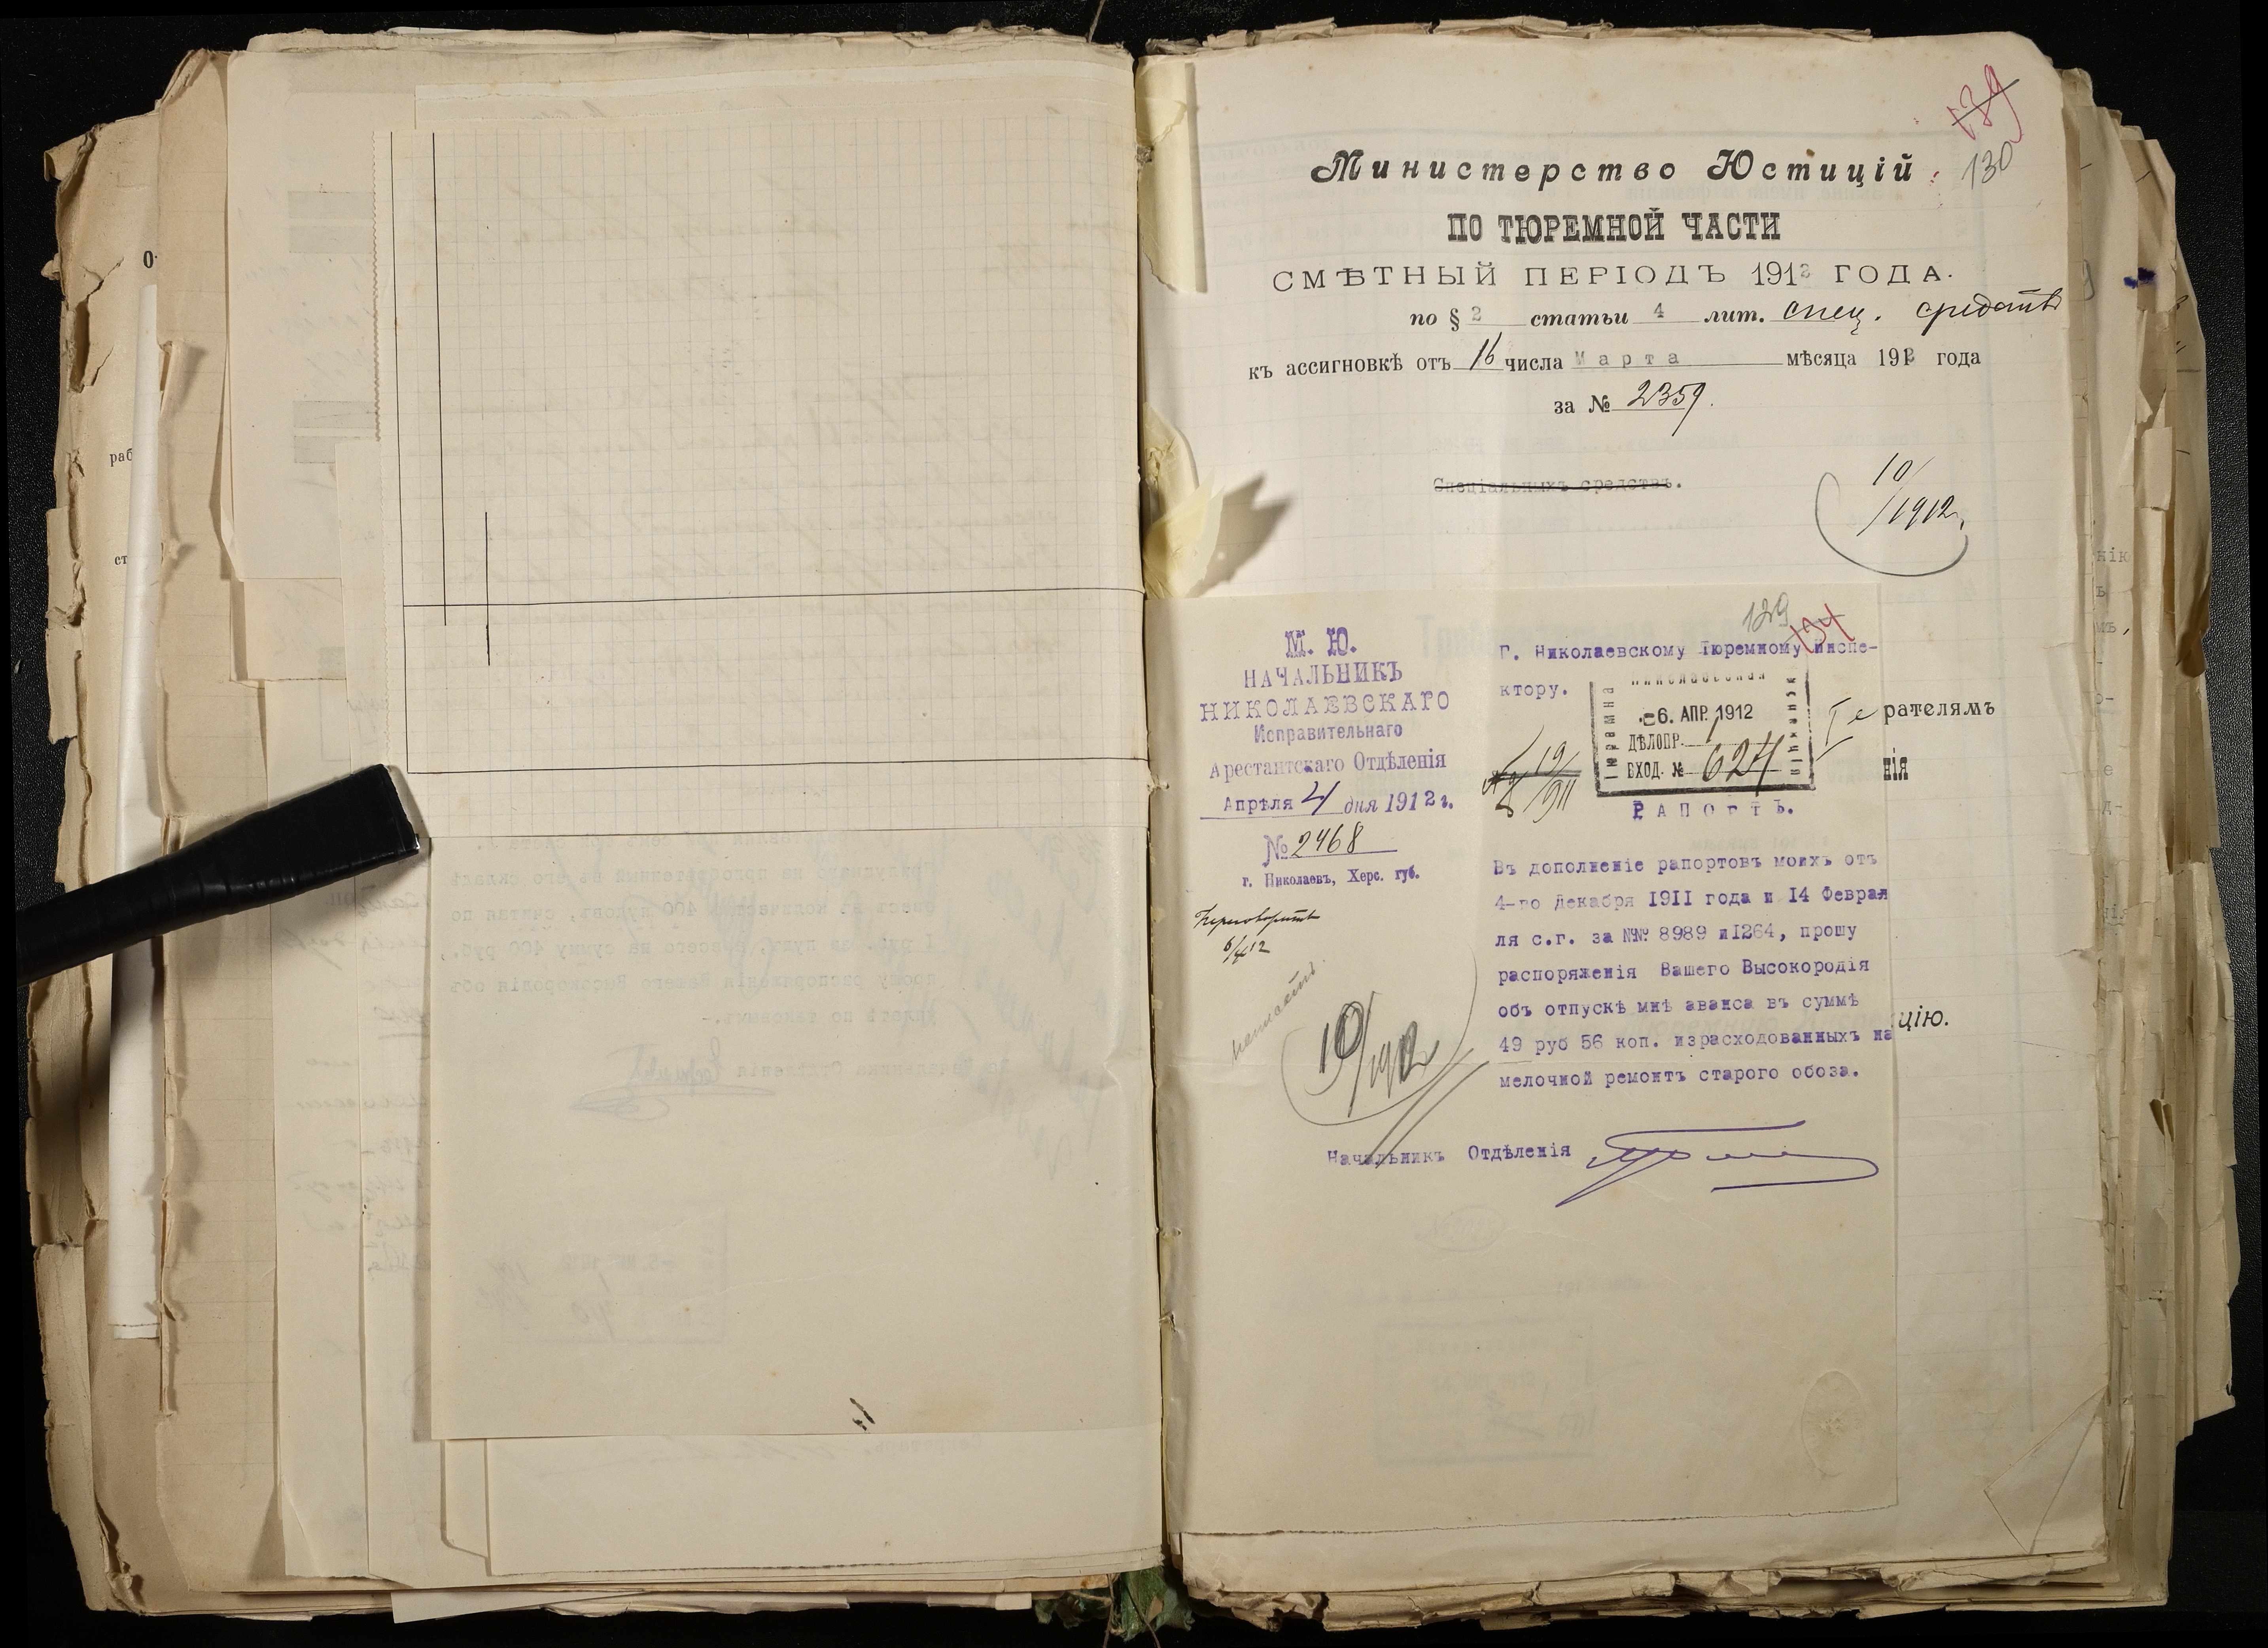 139
130
Министерство Юстиціи
ПО ТЮРЕМНОЙ ЧАСТИ
СМѢТНЫЙ ПЕРІОДЪ 1912 ГОДА.
по § 2 статьи 4 лит. спец. средствъ
къ ассигновкѣ отъ 16 числа Марта мѣсяца 1912 года
за № 2359.
Спеціальныхъ средствъ.
10/1912
129
134
М. Ю.
НАЧАЛЬНИКЪ
НИКОЛАЕВСКАГО
Исправительнаго
Арестантскаго Отдѣленія
Апрѣля 4 дня 1912 г.
№ 2468
г. Николаевъ, Херс. губ.
Переговорить
6/4 12
10/1912
Г. Николаевскому Тюремному Инспе-
ктору.
Николаевская
Тюремная
6. АПР. 1912
ДѢЛОПР. 1
ВХОД. № 624
19/1911
РАПОРТЪ.
Въ дополненіе рапортовъ моихъ отъ
4-го Декабря 1911 года и 14 Феврал
ля с.г. за №№ 8989 и 1264, прошу
распоряженія Вашего Высокородія
объ отпускѣ мнѣ аванса въ суммѣ
49 руб 56 коп. израсходованныхъ на
мелочной ремонтъ старого обоза.
Начальникъ Отдѣленія
рателямъ
нія
цію.